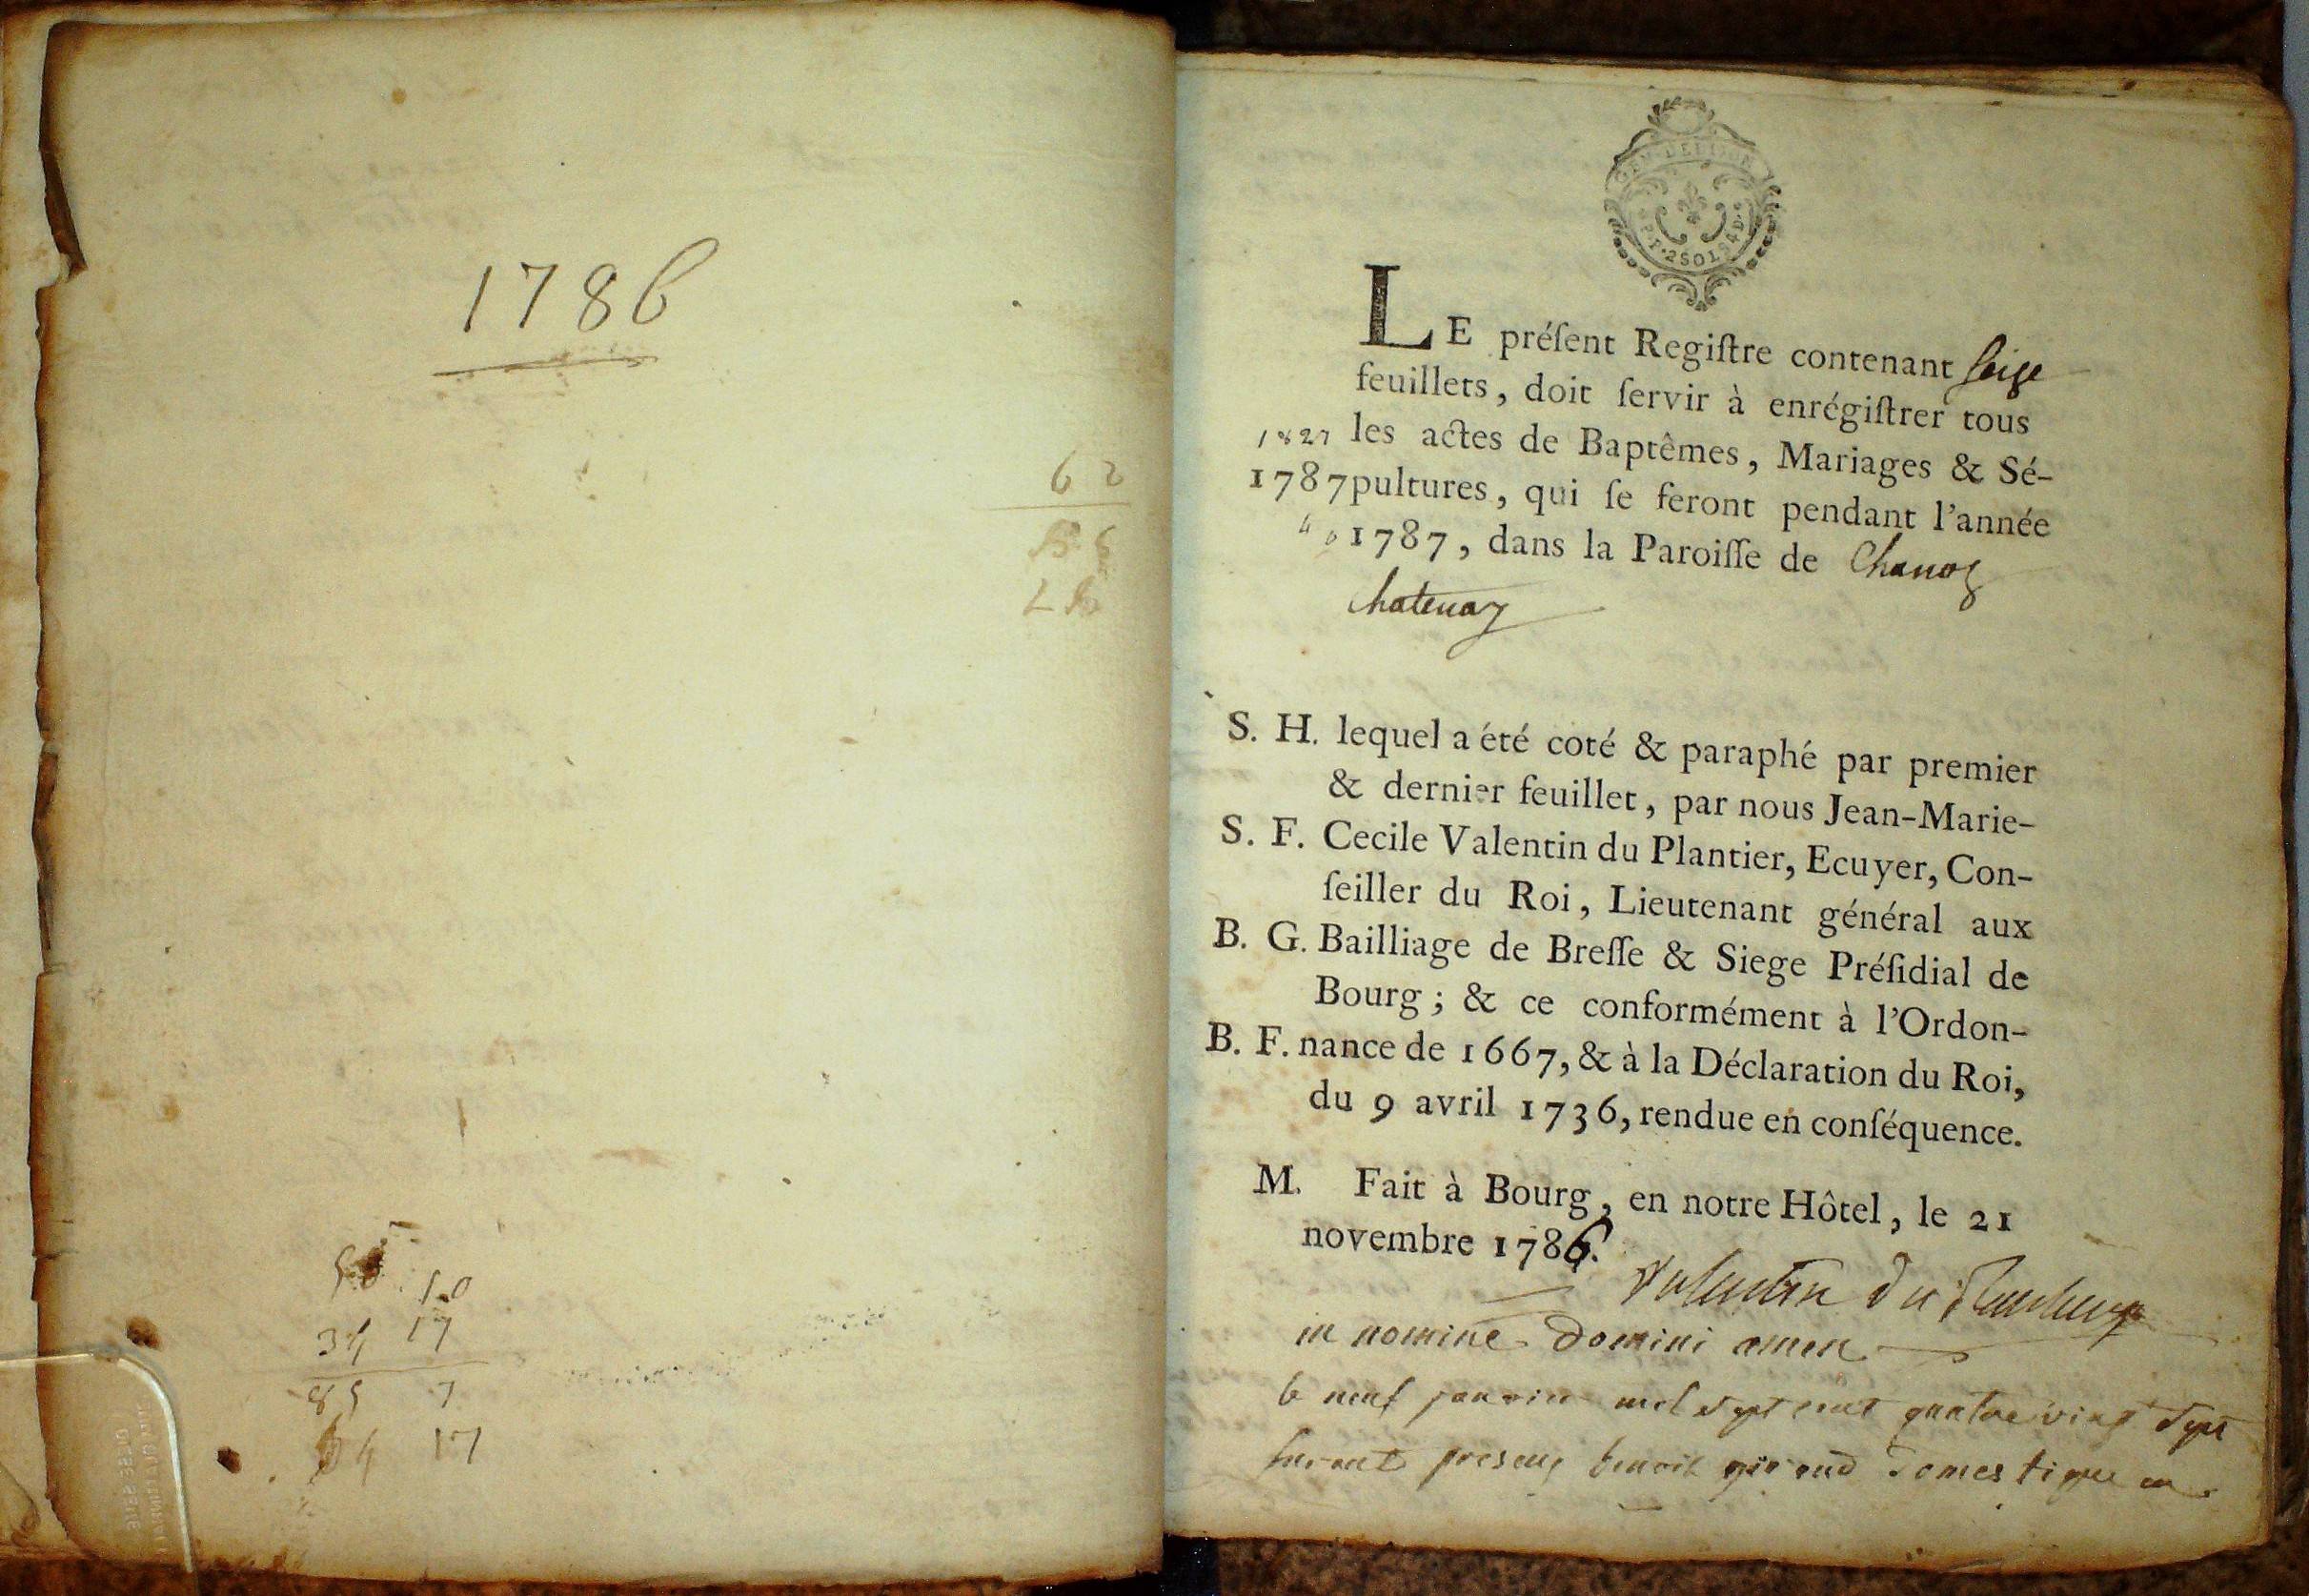 1786
62
50 10
34 17
85 7
54 17
GEN DE DIJON
2 SOLS 4 D
LE préſent Regiſtre contenant ſeize
feuillets, doit ſervir à enrégiſtrer tous
1827 les actes de Baptêmes, Mariages & Sé-
1787 pultures, qui ſe feront pendant l'année
40 1787, dans la Paroiſſe de Chanoz
Chatenay
S. H. lequel a été coté & paraphé par premier
& dernier feuillet, par nous Jean-Marie-
S. F. Cecile Valentin du Plantier, Ecuyer, Con-
ſeiller du Roi, Lieutenant général aux
B. G. Bailliage de Breſſe & Siege Préſidial de
Bourg ; & ce conformément à l'Ordon-
B. F. nance de 1667, & à la Déclaration du Roi,
du 9 avril 1736, rendue en conſéquence.
M. Fait à Bourg, en notre Hôtel, le 21
novembre 1786.
Valentin du Plantier
in nomine Domini amen
le neuf janvier mil sept cent quatre vingt sept
furent presens benoit giroud domestique en